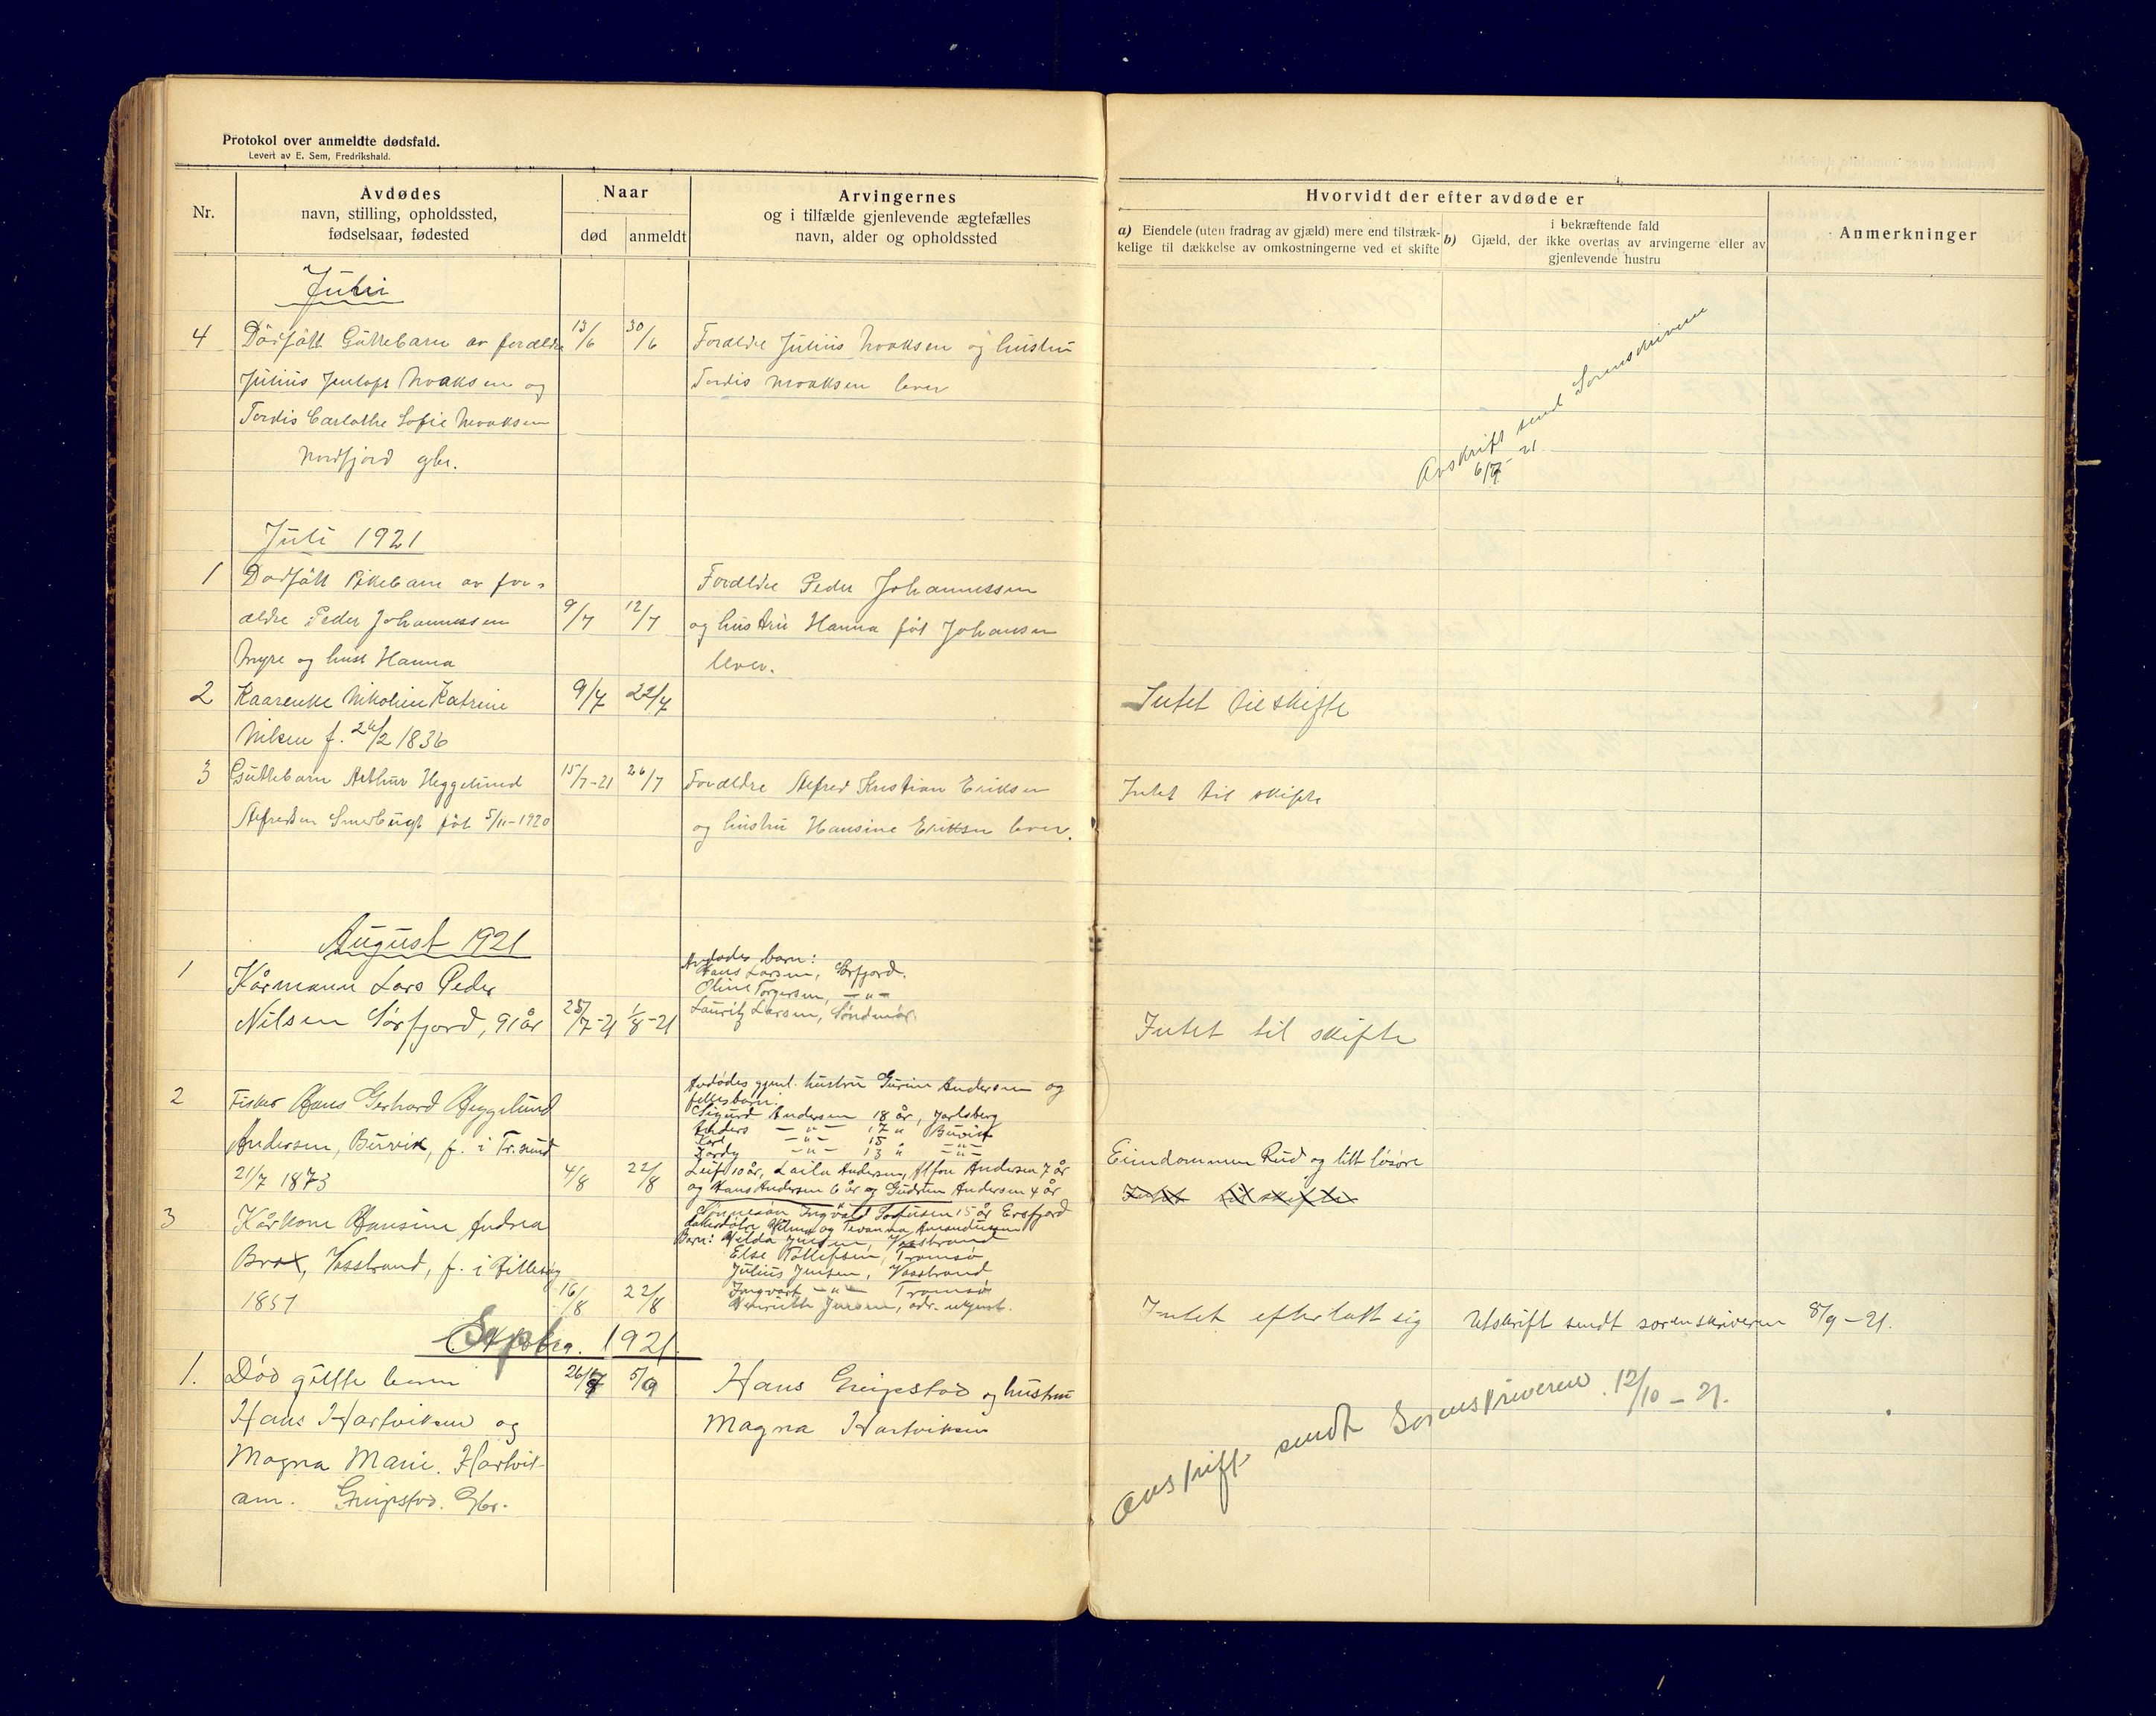 Protokol over anmeldte dødsfald.
Levert av E. Sem, Fredrikshald.
Nr.
Avdødes
navn, stilling, opholdssted,
fødselsaar, fødested
Naar
død
anmeldt
Arvingernes
og i tilfælde gjenlevende ægtefælles
navn, alder og opholdssted
Hvorvidt der efter avdøde er
a) Eiendele (uten fradrag av gjæld) mere end tilstræk-
kelige til dækkelse av omkostningerne ved et skifte
b) i bekræftende fald
Gjæld, der ikke overtas av arvingerne eller av
gjenlevende hustru
Anmerkninger
4 Dödfött Guttebarn av forældre 13/6 30/6 Forældre Julius Noaksen og hustru
Julius Noaksen og Tordis Noaksen lever
Tordis Sofie Noaksen
Nordfjord gbr.
Avskrift send Sorenskriveren
6/7 - 21
Juli 1921
1 Dødføtt Pikebarn av for-
ældre Peder Johannessen 9/7 12/7
Myre og hust Hanna
Forældre Peder Johannessen
og hustru Hanna føt Johansen
lever.
2 Kaarenke Nikoline Katrine 9/7 22/7 Intet til skifte
Nilsen f. 26/2 1836
3 Guttebarn Arthur Heggelund 15/7-21 26/7 Forældre Alfred Kristian Eriksen Intet til skifte
Alfredsen føt 5/11-1920 og hustru Hansine Eriksen lever.
August 1921
1 Kårmann Lars Peder
Nilsen Sørfjord, 91 år 25/7-21 1/8-21
Avdødes barn:
Hans Larsen, Sørfjord.
Oline Torgersen, -"-
Lauritz Larsen, Søndmør.
Intet til skifte
2 Fisker Hans Gerhard Heggelund
Andersen, Buvik, f. i Tr.sund
21/7 1873 4/8 22/8
Avdødes gjenl. hustru Andersen og
fellesbarn:
Sigurd Andersen 18 år, Jarlsberg
Anders -"- 17 " Buvik
Karl -"- 15 "
-"- 13 " -"-
Leif 10 år, Laila Andersen, Andersen 7 år
og Hans Andersen 6 år og Andersen 4 år
Eiendommen Rud og litt løsøre
Intet til skifte
3 Kårkone Hansine Andrea
Brox, Vasstrand, f. i Hillesøy
1857 16/8 22/8
Sønnesøn Ingvald 15 år Ersfjord
Barn: Hilda Jensen, Vasstrand
Else Tollefsen, Tromsø
Julius Jensen, Vasstrand
Ingvart -"- Tromsø
Henriette Jensen, adr. ukjent.
Intet efterlatt sig Utskrift sendt sorenskriveren 8/9-21.
Septbr. 1921.
1. Død gutte barn 26/7 5/9 Hans Greipstad og hustru
Hans Hartviksen og Magna Hartviksen
Magna Marie. Hartvik-
sen. Greipstad. Gbr.
Avskrift sendt Sorenskriveren. 12/10 - 21.